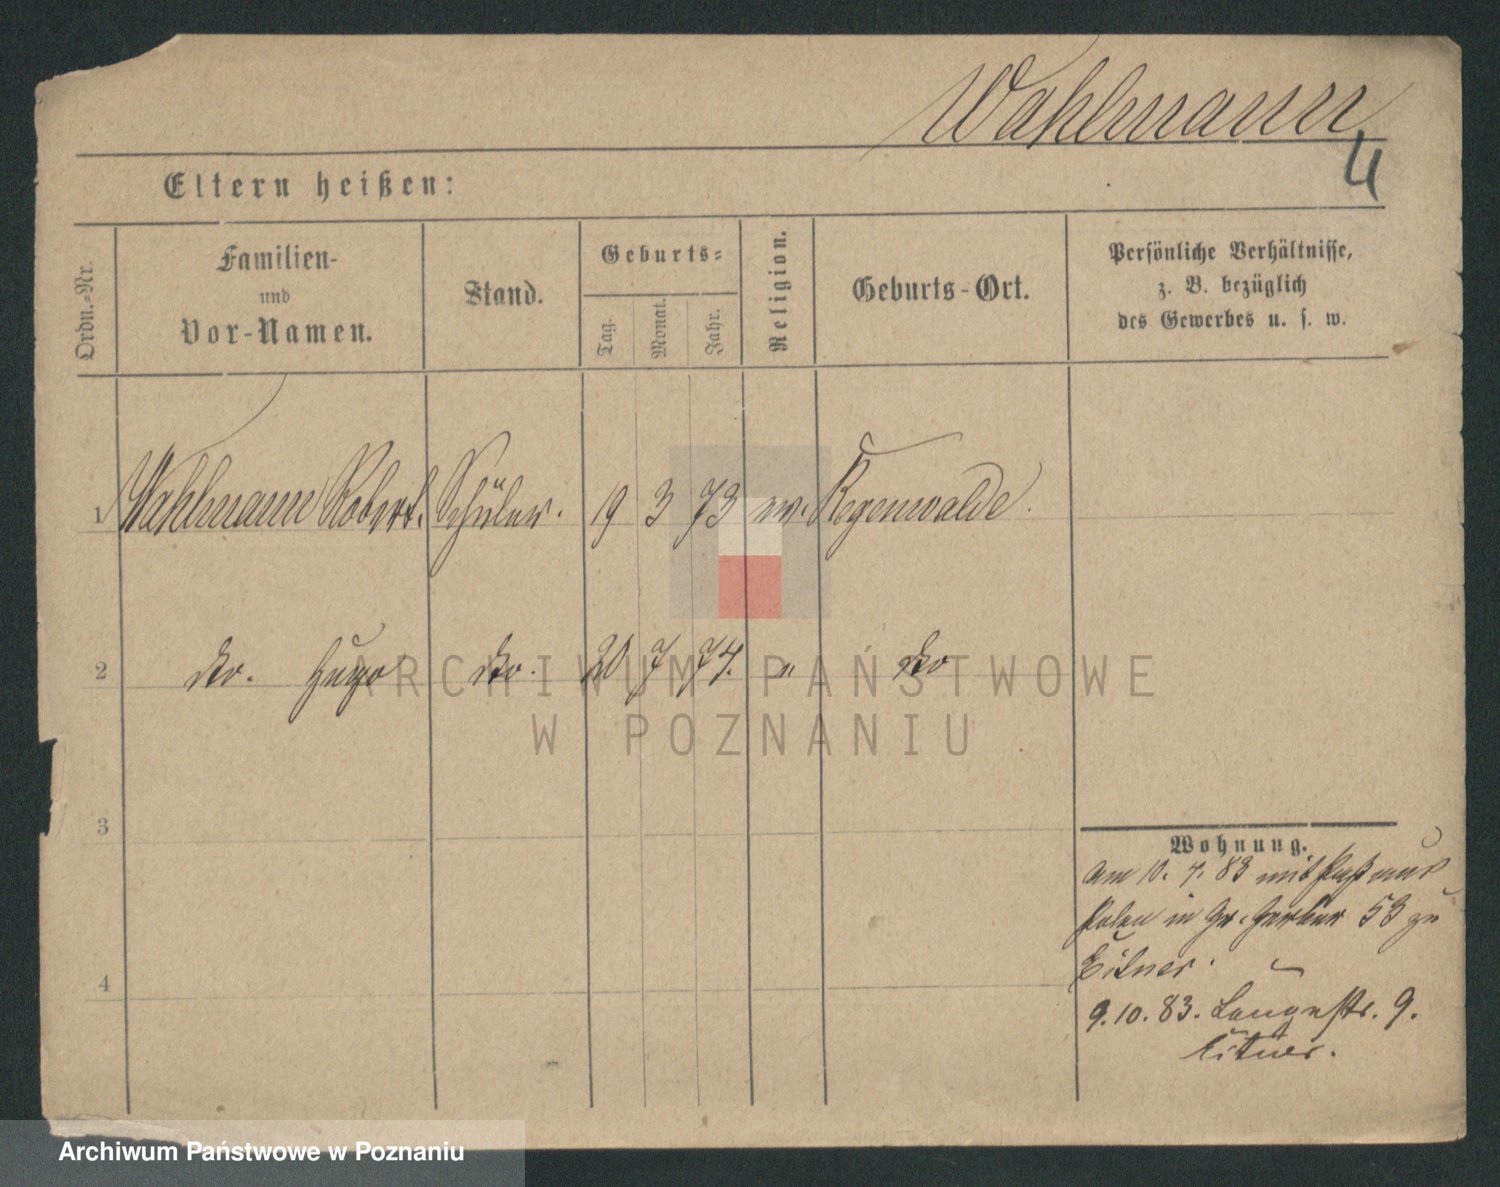 Wahlmann
4
Eltern heißen:
Ordn.-Nr.
Familien-
und
Vor-Namen.
Stand.
Geburts-
Tag.
Monat.
Jahr.
Religion.
Geburts-Ort.
Persönliche Verhältnisse,
z. B. bezüglich
des Gewerbes u. s. w.
1 Wahlmann Robert. Schüler. 19 3 73 ev. Regenwalde.
2 dto. Hugo dto. 20 7 74. " dto
3
4
Wohnung.
am 10. 4. 83 mit Paß aus
Polen in Gr. Gerber 53 zu
Eitner.
9.10.83. Langestr. 9.
Eitner.
ARCHIWUM PAŃSTWOWE
W POZNANIU
Archiwum Państwowe w Poznaniu